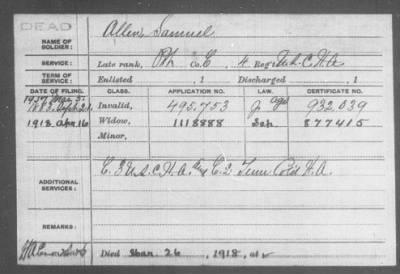 DEAD
NAME OF SOLDIER: Allen, Samuel
SERVICE: Late rank, Pvt Co. C, 4 Reg't U.S.C.H.A
TERM OF SERVICE: Enlisted , 1 Discharged , 1
DATE OF FILING. CLASS. APPLICATION NO. LAW. CERTIFICATE NO.
Invalid, 495.753 Age 932.039
1918 Apr 16 Widow, 1118888 877415
Minor,
ADDITIONAL SERVICES: C. 3 U.S.C.H.A. and C. 2 Tenn Col'd H.A.
REMARKS:
Died Mar. 26, 1918, at